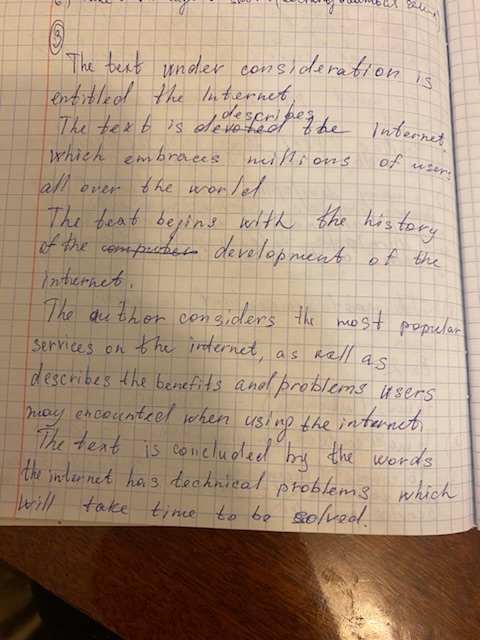 ③
The text under consideration is
entitled the Internet.
describes
The text is devoted the Internet,
which embraces millions of users
all over the world
The text begins with the history
of the computer development of the
internet.
The author considers the most popular
services on the internet, as well as
describes the benefits and problems users
may encounted when using the internet.
The text is concluded by the words
the internet has technical problems which
will take time to be solved.